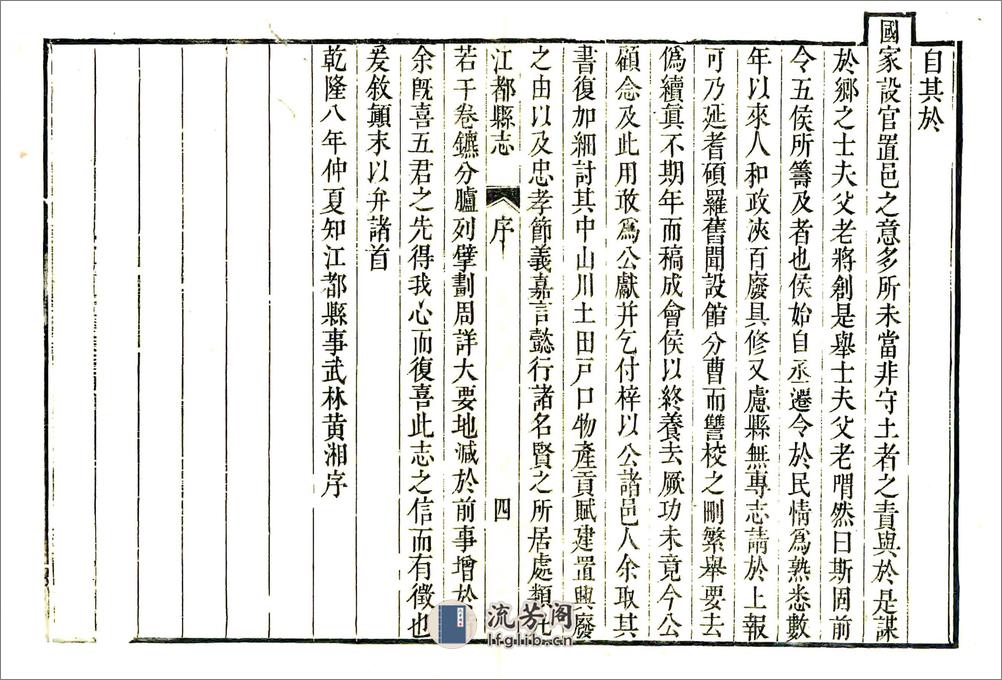 自其於
國家設官置邑之意多所未當非守土者之責與於是謀
於鄉之士夫父老將創是舉士夫父老喟然曰斯固前
令五侯所籌及者也侯始自丞遷令於民情爲熟悉數
年以來人和政浹百廢具修又慮縣無專志請於上報
可乃延耆碩羅舊聞設館分曹而讐校之刪繁舉要去
僞續眞不期年而稿成會侯以終養去厥功未竟今公
顧念及此用敢爲公獻并乞付梓以公諸邑人余取其
書復加細討其中山川土田戸口物產貢賦建置興廢
之由以及忠孝節義嘉言懿行諸名賢之所居處類
江都縣志 序 四
若干卷鑣分臚列擘劃周詳大要地減於前事增於
余既喜五君之先得我心而復喜此志之信而有徵也
爰敘顛末以弁諸首
乾隆八年仲夏知江都縣事武林黄湘序
流芳阁
lfglib.cn